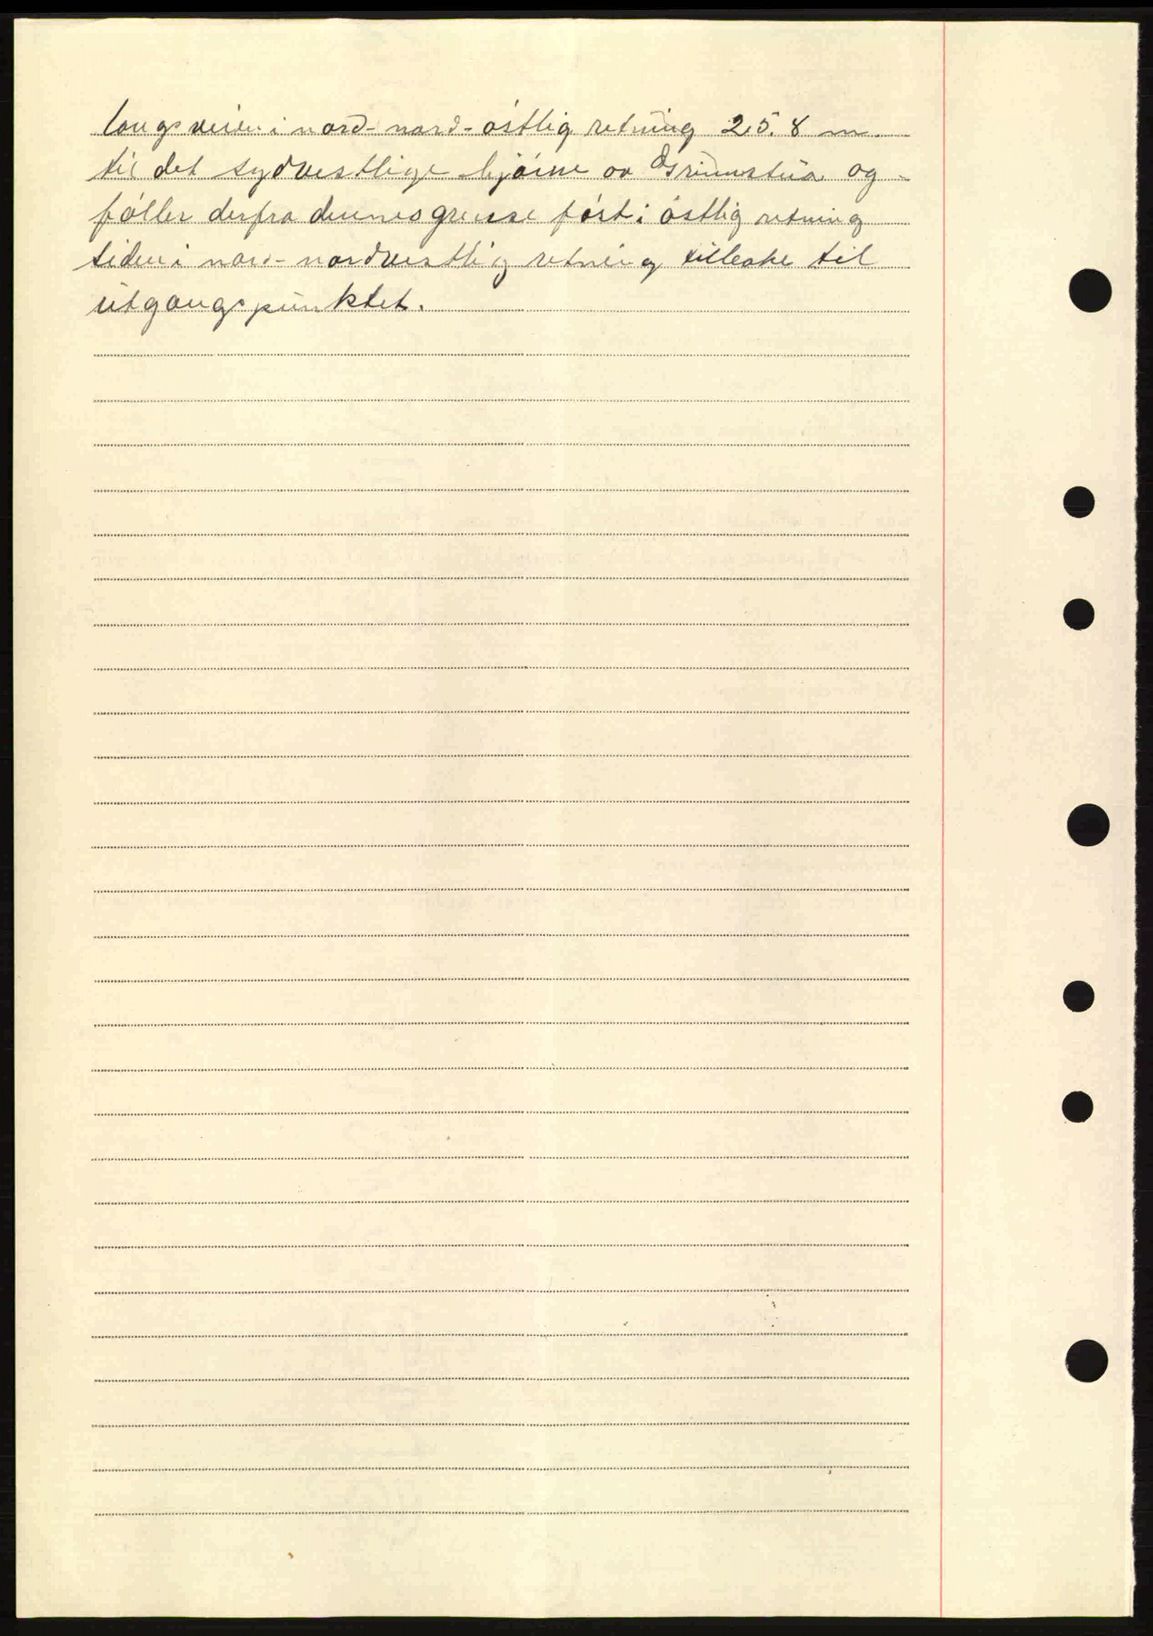 langs veien i nord-nord-östlig retning 25.8 m.
til det sydvestlige hjörne av Grünnstua og
föller derfra dennes grense först i östlig retning
siden i nord-nordvestlig retning tilbake til
utgangspunktet.